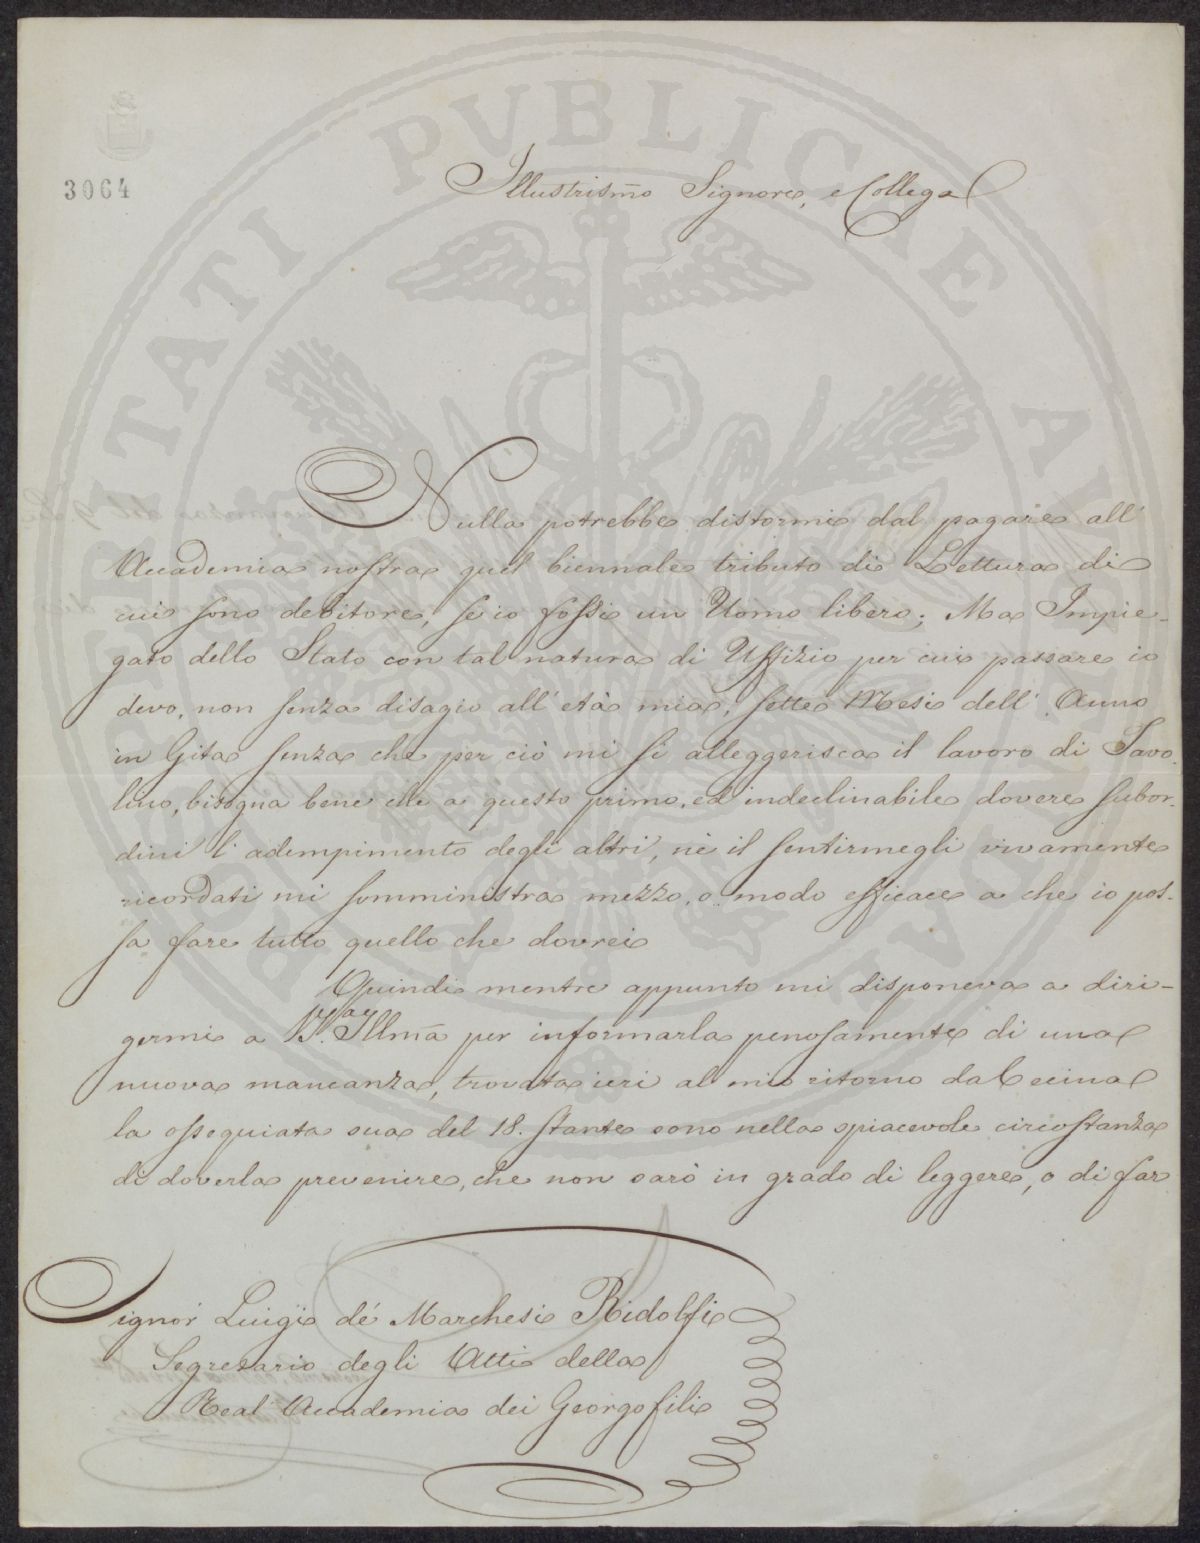 PROSPERITATI PVBLICAE AVGENDAE
3064
Illustrism̃o Signore, e Collega
Nulla potrebbe distormi dal pagare all'
Accademia nostra quel biennale tributo di Lettura di
cui sono debitore, se io fossi un Uomo libero; Ma Impie-
gato dello Stato con tal natura di Uffizio per cui passare io
devo, non senza disagio all' età mia, sette Mesi dell' Anno
in Gita senza che per ciò mi si alleggerisca il lavoro di Tavo-
lino, bisogna bene che a questo primo, ed indeclinabile dovere subor-
dini l' adempimento degli altri, nè il sentirmegli vivamente
ricordati mi somministra mezzo, o modo efficace a che io pos-
sa fare tutto quello che dovrei
Quindi mentre appunto mi disponeva a diri-
germi a V.ª Illm̃a per informarla penosamente di una
nuova mancanza, trovata ieri al mio ritorno da Cecina
la ossequiata sua del 18. stante sono nella spiacevole circostanza
di doverla prevenire, che non sarò in grado di leggere, o di far
Signor Luigi de' Marchesi Ridolfi
Segretario degli Atti della
Real Accademia dei Georgofili